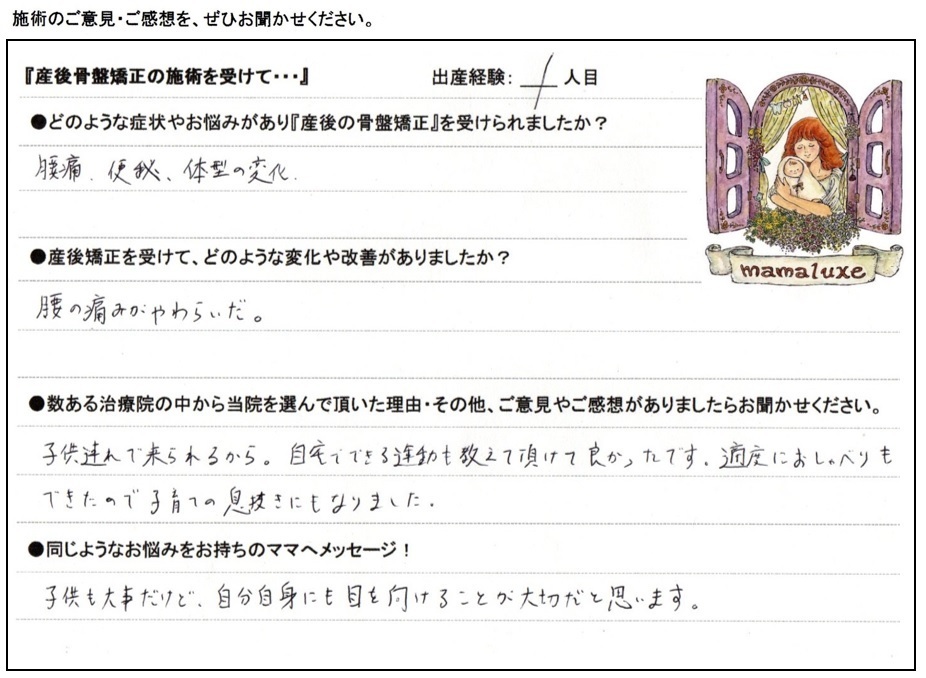 施術のご意見・ご感想を、ぜひお聞かせください。
『産後骨盤矯正の施術を受けて・・・』 出産経験：1人目
●どのような症状やお悩みがあり『産後の骨盤矯正』を受けられましたか？
腰痛、便秘、体型の変化.
●産後矯正を受けて、どのような変化や改善がありましたか？
腰の痛みがやわらいだ。
mamaluxe
●数ある治療院の中から当院を選んで頂いた理由・その他、ご意見やご感想がありましたらお聞かせください。
子供連れで来られるから。自宅でできる運動も教えて頂けて良かったです。適度におしゃべりも
できたので子育ての息抜きにもなりました.
●同じようなお悩みをお持ちのママへメッセージ！
子供も大事だけど、自分自身にも目を向けることが大切だと思います。